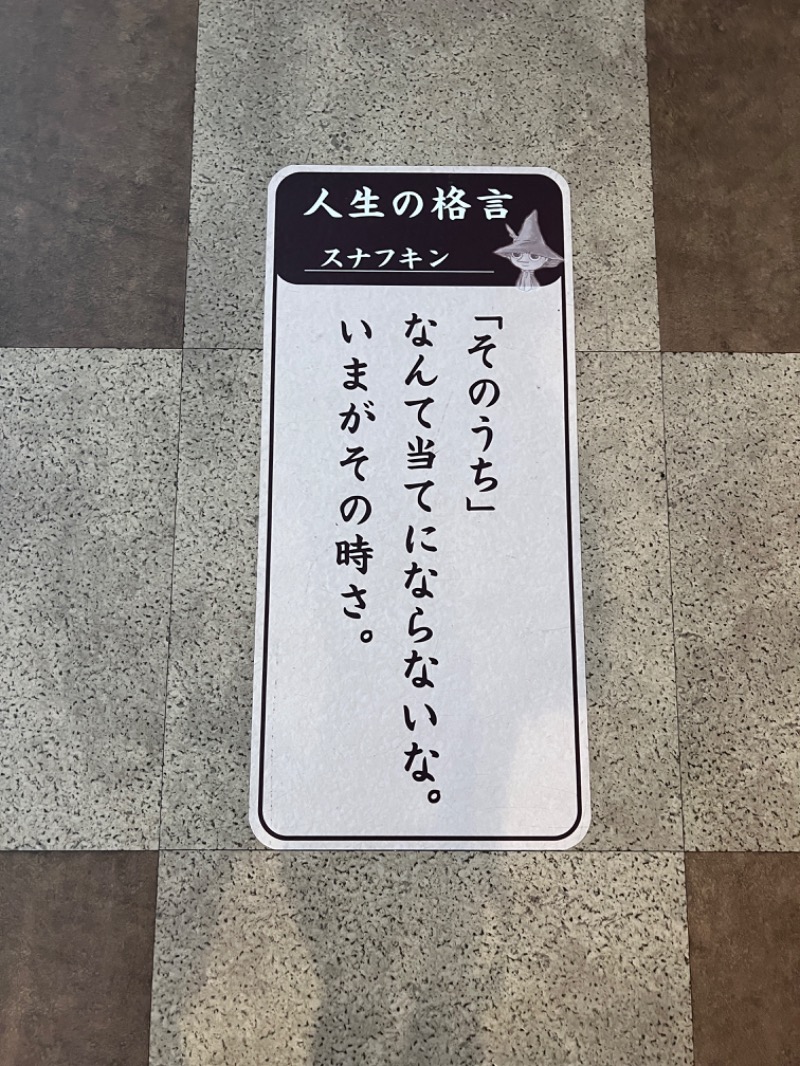 人生の格言
スナフキン
「そのうち」
なんて当てにならないな。
いまがその時さ。